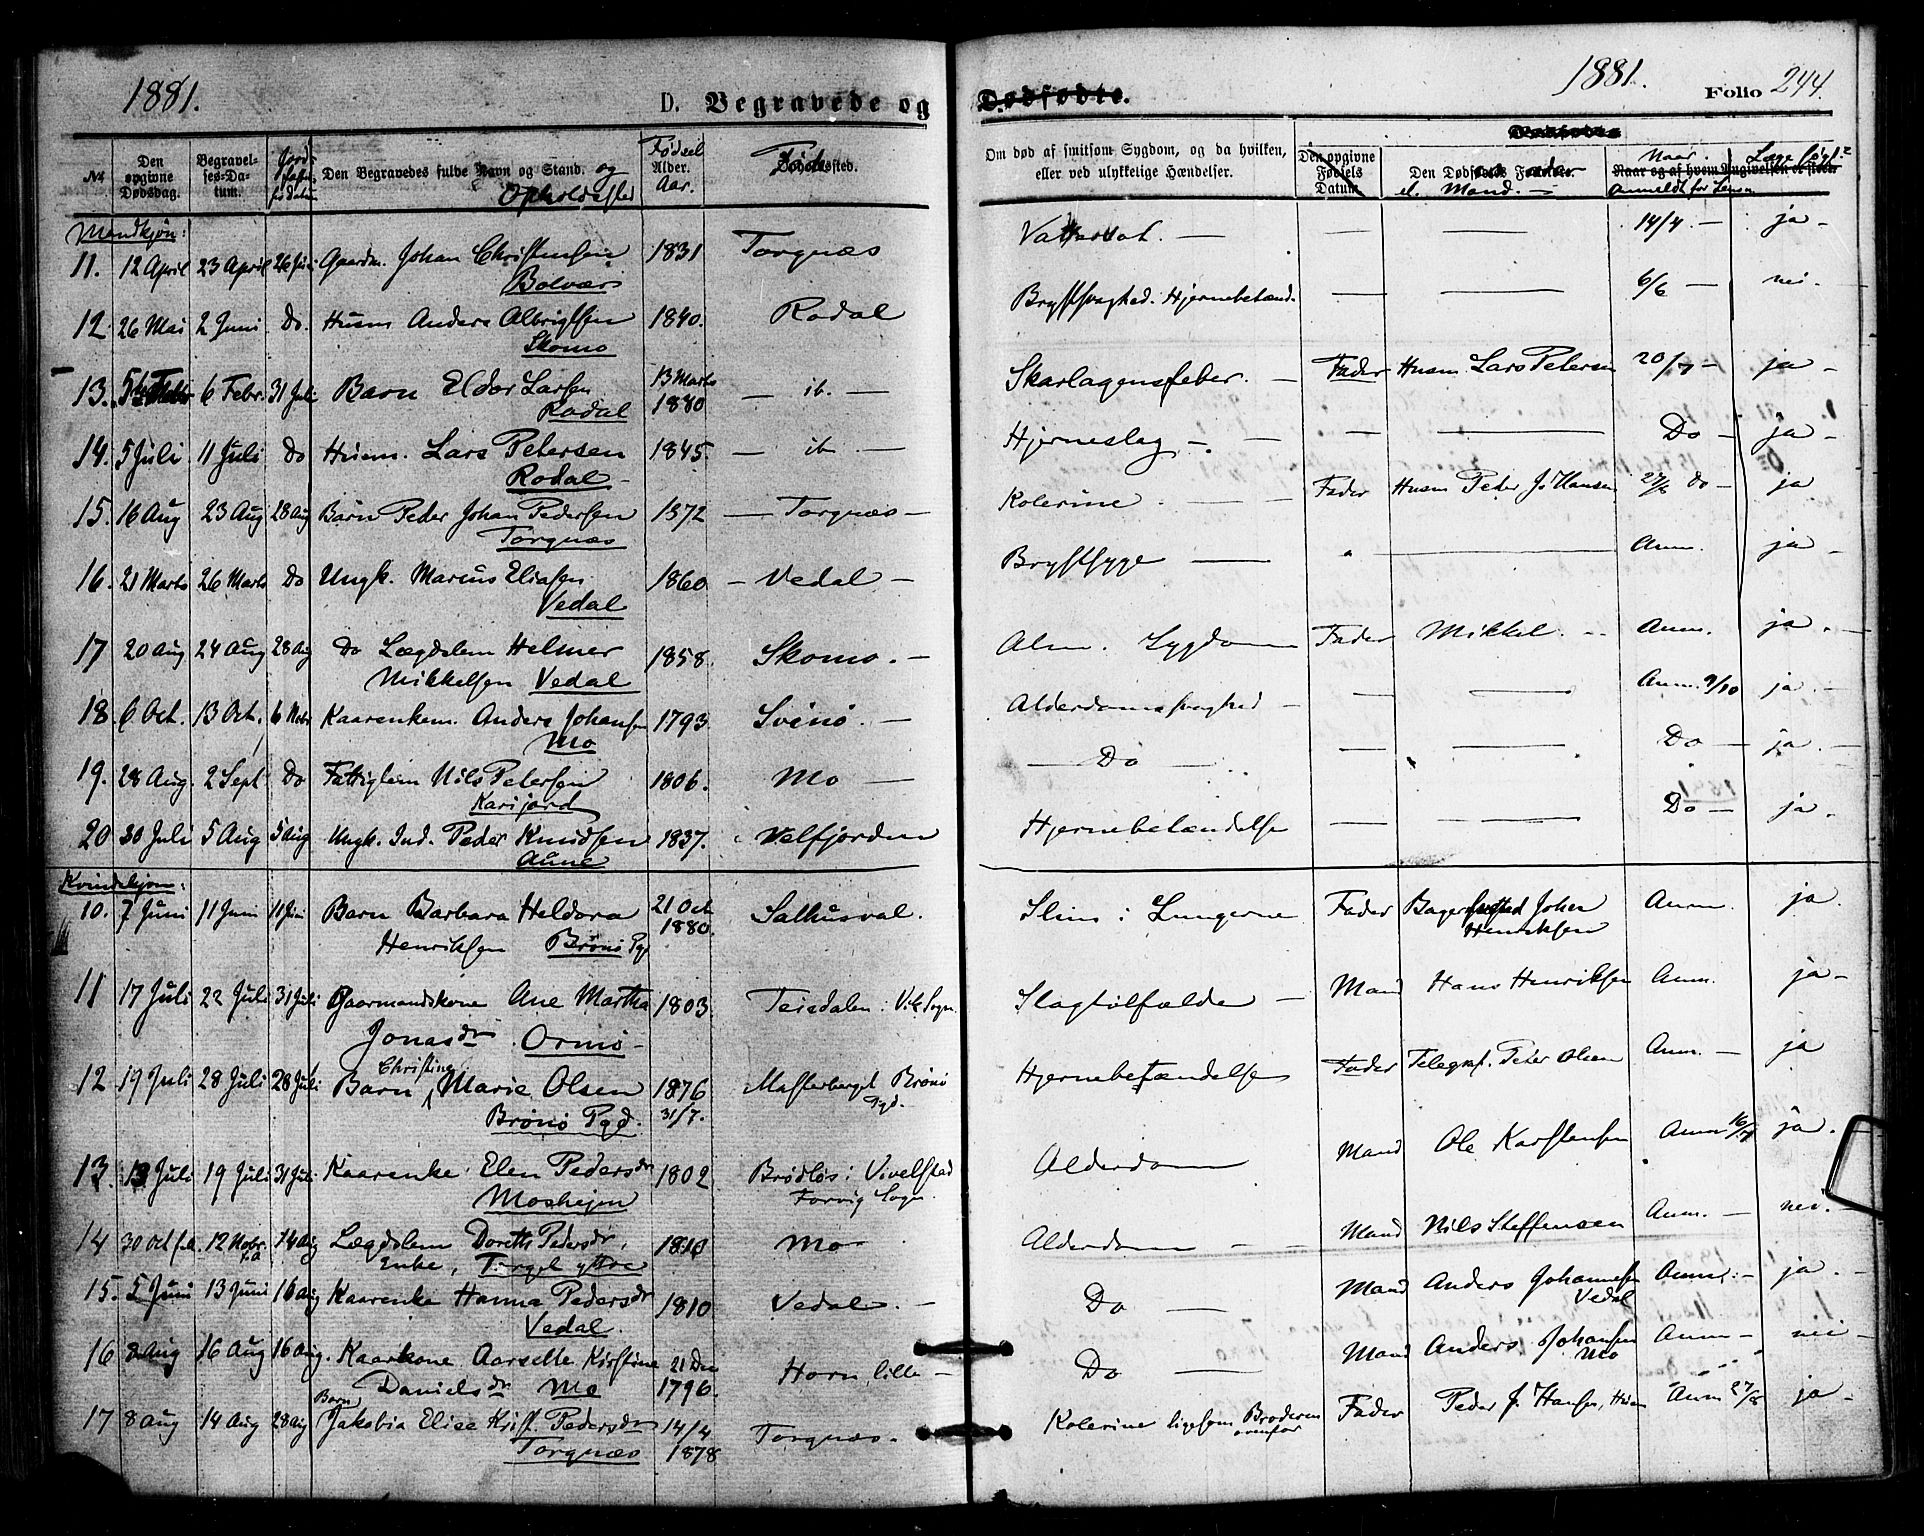 1881.
D. Begravede og
Dødfødte.
1881.
Folio 244.
№
Den opgivne Dødsdag.
Begravelses-Datum.
Den Begravedes fulde Navn og Stand. og Opholdssted
Fødsel Alder. Aar.
Føde
Om død af smitsom Sygdom, og da hvilken, eller ved ulykkelige Hændelser.
Den opgivne Fødsels Datum.
Den Dødfødtes Fader el. Mand.
Naar og af hvem Angivelsen er skeet
Naar Anmeldt for Lensm.
Læge søgt?
Mandkjøn:
11. 12 April 23 April 26 Juni Gaardm. Johan Christensen 1831 Torgnæs — — 14/4 — ja —
Bolvær
12. 26 Mai 2 Juni Do. Husm Anders Albrigtsen 1840. Rodal Brystsvaghed. Hjernebetænd. — — 6/6 — nei.
Skomo
13. 6 Febr. 31 Juli Barn Eldor Larsen 13 Marts 1880 — ib. — Skarlagensfeber. — Fader Husm Lars Petersen 20/7 — ja —
Rodal
14. 5 Juli 11 Juli Do Husm. Lars Petersen 1845. — ib — Hjerneslag — — — Do — ja —
Rodal —
15. 16 Aug 23 Aug 28 Aug Barn Peder Johan Pedersen 1872 — Torgnæs — Kolerine — Fader Husm Peder J. Hansen 27/8 Do — ja
Torgnæs
16. 21 Marts 26 Marts Do Ungk. Marius Eliasen 1860 — Vedal — Brystsyge — — Anm. ja —
Vedal
17 20 Aug 24 Aug 28 Aug Do Lægdslem Helmer 1858. Skomo. — Alm. Sygdom Fader Mikkel. Anm. ja. —
Mikkelsen Vedal
18. 6 Oct. 13 Oct. 6 Nobr Kaarenkem. Anders Johansen 1793. Svinø. — Alderdomssvaghed — — — Anm. 9/10 ja. —
Mo
19. 28 Aug. 2 Sept Do Fattiglem Nils Petersen 1806. Mo — — Do — — — Do — ja. —
Karijord
20 30 Juli 5 Aug 5 Aug Ungk. Ind. Peder Knudsen 1837. Velfjorden Hjernebetændelse — — Do — ja.
Aune
Kvindekjøn:
10. 7 Juni 11 Juni 11 Juni Barn Barbara Heldora 21 Oct 1880. Salhusval. Slim i Lungerne Fader Johan Henriksen Anm. ja.
Henriksen Brønø Pgd
11 17 Juli 22 Juli 31 Juli Gaarmandskone Ane Martha 1803. Teisdalen i Vik Sogn. Slagtilfælde — Mand Hans Henriksen Anm. ja —
Jonasdr. Ormø —
12 19 Juli 28 Juli 28 Juli Barn Christine Marie Olsen 1876 31/7. Brønø Pgd. Hjernebetændelse Fader Telegraf. Peter Olsen Anm. — ja
Brønø Pgd.
13. 13 Juli 19 Juli 31 Juli Kaarenke Elen Pedersdr 1802 Brødløs i Vivelstad Forvig Sogn. Alderdom Mand Ole Karstensen Anm ja.
Moshejen
14 30 Oct f.A. 12 Nobr f.A 14 Aug Lægdslem Doreth Pedersdr, 1810 Mo Alderdom — Mand Nils Steffensen Anm. — nei.
Enke, Torget yttre
15. 5 Juni 13 Juni 16 Aug Kaarenke Hanna Pedersdr 1810 Vedal. — Do — Mand Anders Johannesen Vedal Anm. — ja. —
Vedal.
16 8 Aug 16 Aug 16 Aug. Kaarkone Aarsette Kirstine 21 Dec 1796. Horn, lille — Do — Mand Anders Johansen Mo Anm — nei —
Danielsdr Mo
17 8 Aug 14 Aug 28 Aug Barn Jakobia Elise Krist. Pedersdr 14/4 1878 Torgnæs. Kolerine ligesom Broderen ovenfor Fader Peder J. Hansen, Husm Anm 27/8 ja —
Torgnæs